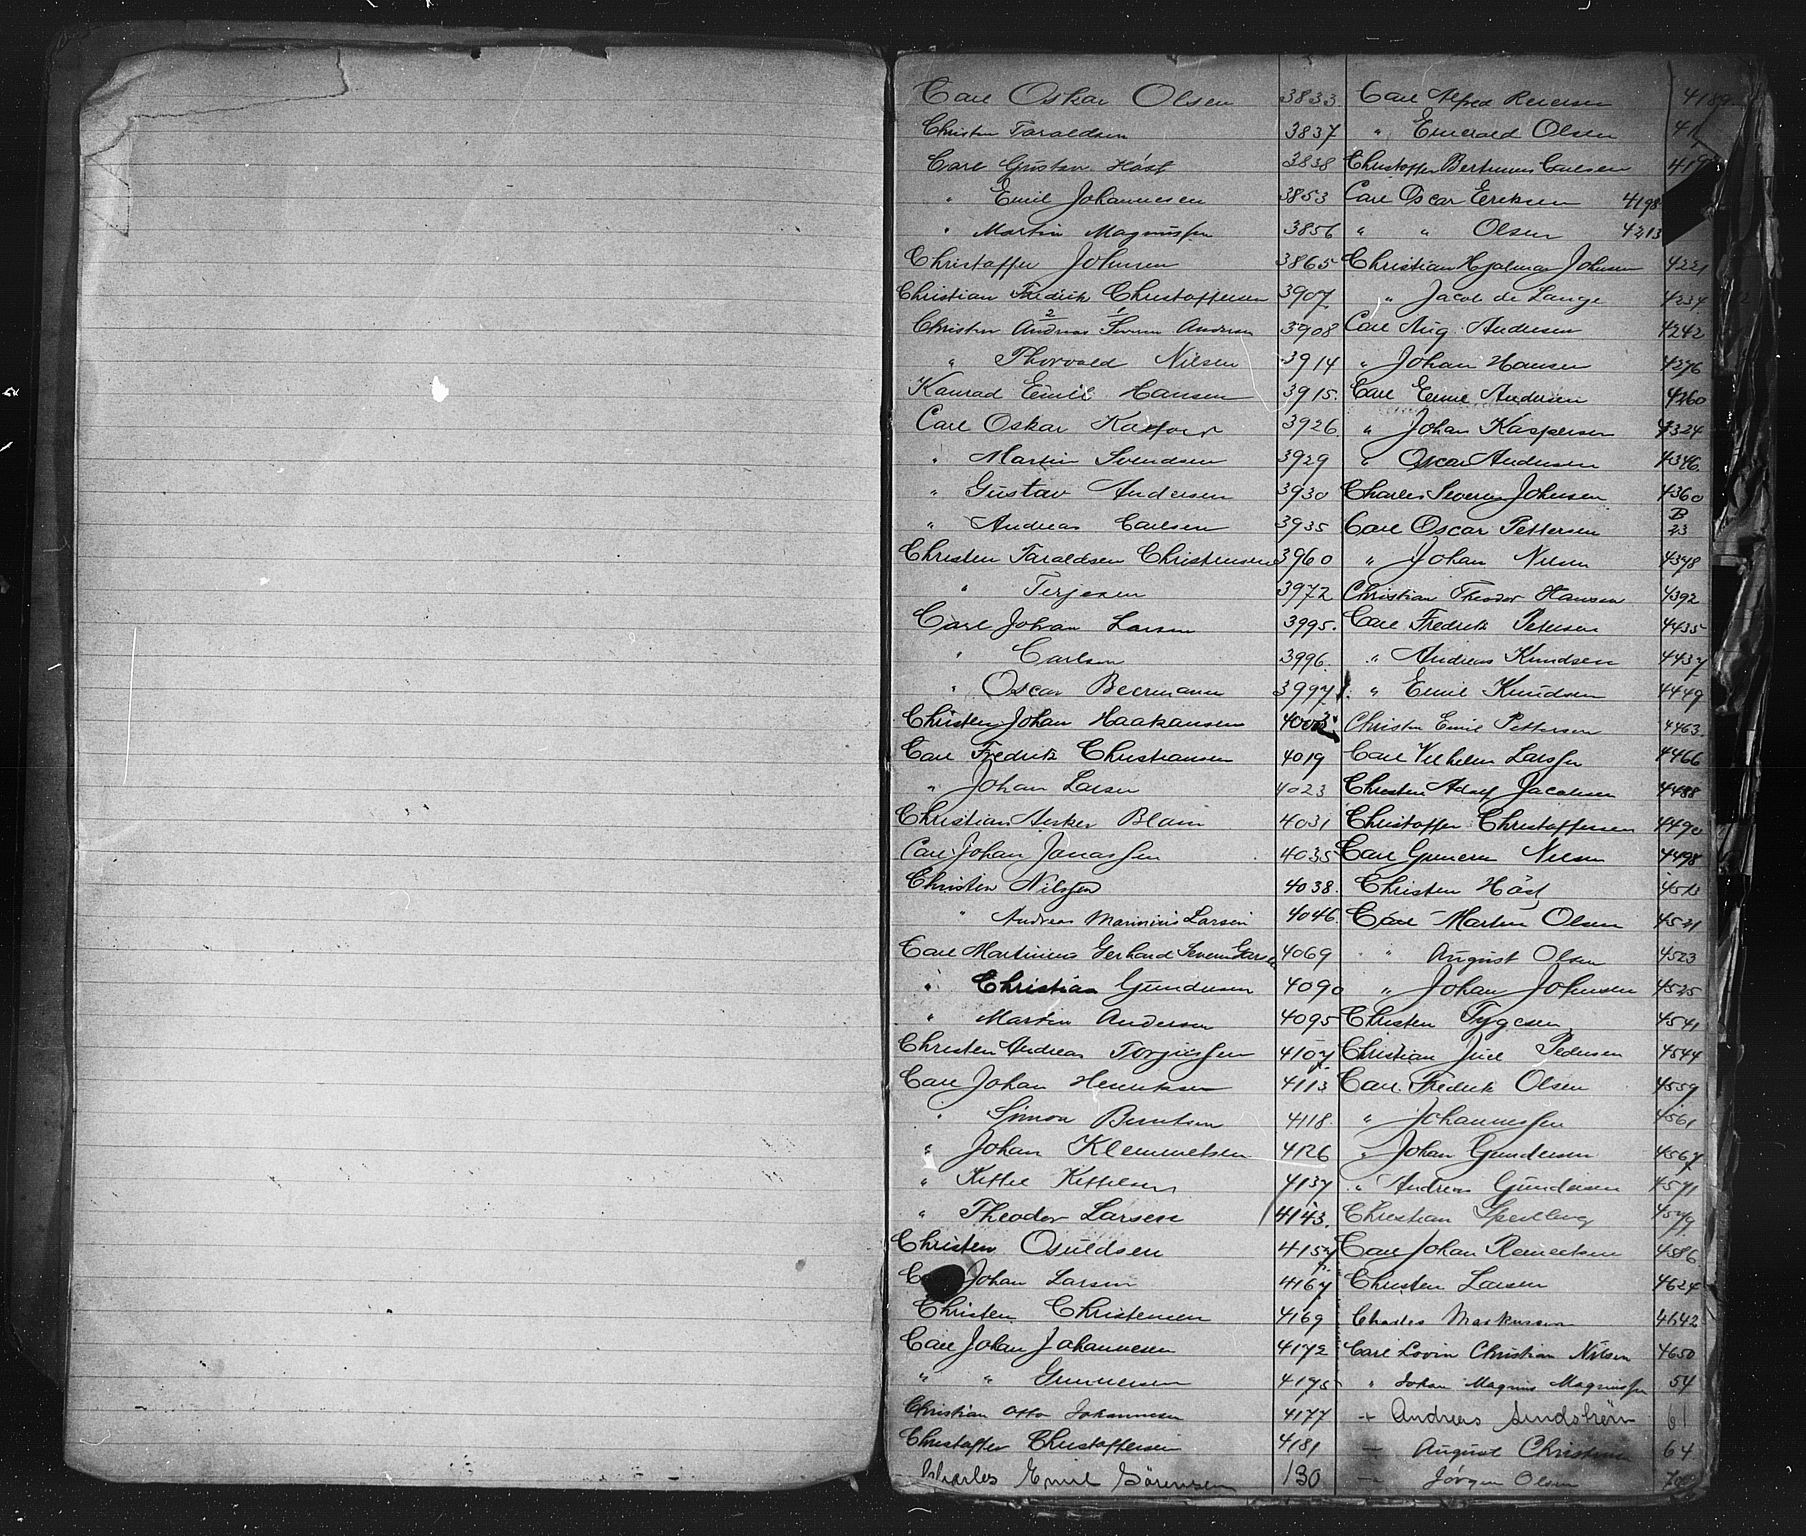 Carl Oskar Olsen 3833
Christen Taraldsen 3837
Carl Gustav Höst 3838
" Emil Johannesen 3853
" Martin Magnussen 3856
Christoffer Johnsen 3865
Christian Fredrik Christoffersen 3907
Christen Andreas Severin Andersen 3908
" Thorvald Nilsen 3914
Konrad Emil Hansen 3915.
Carl Oskar 3926.
" Martin Svendsen 3929
" Gustav Andersen 3930
" Andreas Carlsen 3935
Christen Taraldsen Christensen 3960
" Terjesen 3972
Carl Johan Larsen 3995.
" Carlsen 3996.
" Oscar Beermann 3997
Christen Johan Haakansen
Carl Fredrik Christiansen 4019
" Johan Larsen 4023
Christian Anker Blom 4031
Carl Johan Jonassen 4035
Christen Nilssen 4038.
" Andreas Marinius Larsen 4046.
Carl Martinius Gerhard Severin Larsen 4069
" Christian Gundersen 4090
" Martin Andersen 4095
Christen Andreas Torjussen 4107
Carl Johan Henriksen 4113
" Simon Berntsen 4118.
" Johan Klemmetsen 4126
" Kittel Kittelsen 4137
" Theodor Larsen 4143.
Christen Osuldsen 4157
Johan Larsen 4167
Christen Christensen 4169
Carl Johan Johannesen 4172
" " Gunnersen 4175
Christian Otto Johannesen 4177
Christoffer Christoffersen 4181
Charles Emil Sörensen 130
Carl Alfred Reiersen 4189
" Emerald Olsen
Christoffer Bertinius Carlsen
Carl Oscar Eriksen 4198
" " Olsen 4213
Christian Hjalmar Johnsen 4221
" Jacob de Lange 4237
Carl Aug. Andersen 4242
" Johan Hansen 4276
Carl Emil Andersen 4260
" Johan Kaspersen 4324
" Oscar Andersen 4346.
Charles Severin Johnsen 4360
Carl Oscar Pettersen B 23
" Johan Nilsen 4378
Christian Theodor Hansen 4392
Carl Fredrik Petersen 4435
" Andreas Knudsen 4437
" Emil Knudsen 4449
Christen Emil Pettersen 4463.
Carl Vilhelm Larssen 4466
Christen Adolf Jacobsen 4488
Christoffer Christoffersen 4490
Carl Gunerius Nilsen 4498
Christen Höst 4513
Carl Martin Olsen 4521
" August Olsen 4523
" Johan Johnsen 4525
Christen Tygesen 4541
Christian Juel Pedersen 4544
Carl Fredrik Olsen 4559
" Johannessen 4561
" Johan Gundersen 4567
" Andreas Gundersen 4571
Christian
Carl Johan Reinertsen 4586
Christen Larsen 4624
Charles Markussen 4642
Carl Lovin Christian Nilsen 4650
" Johan Magnus Magnussen 54
" Andreas Lindström 61
" August Christensen 64
" Jörgen Olsen